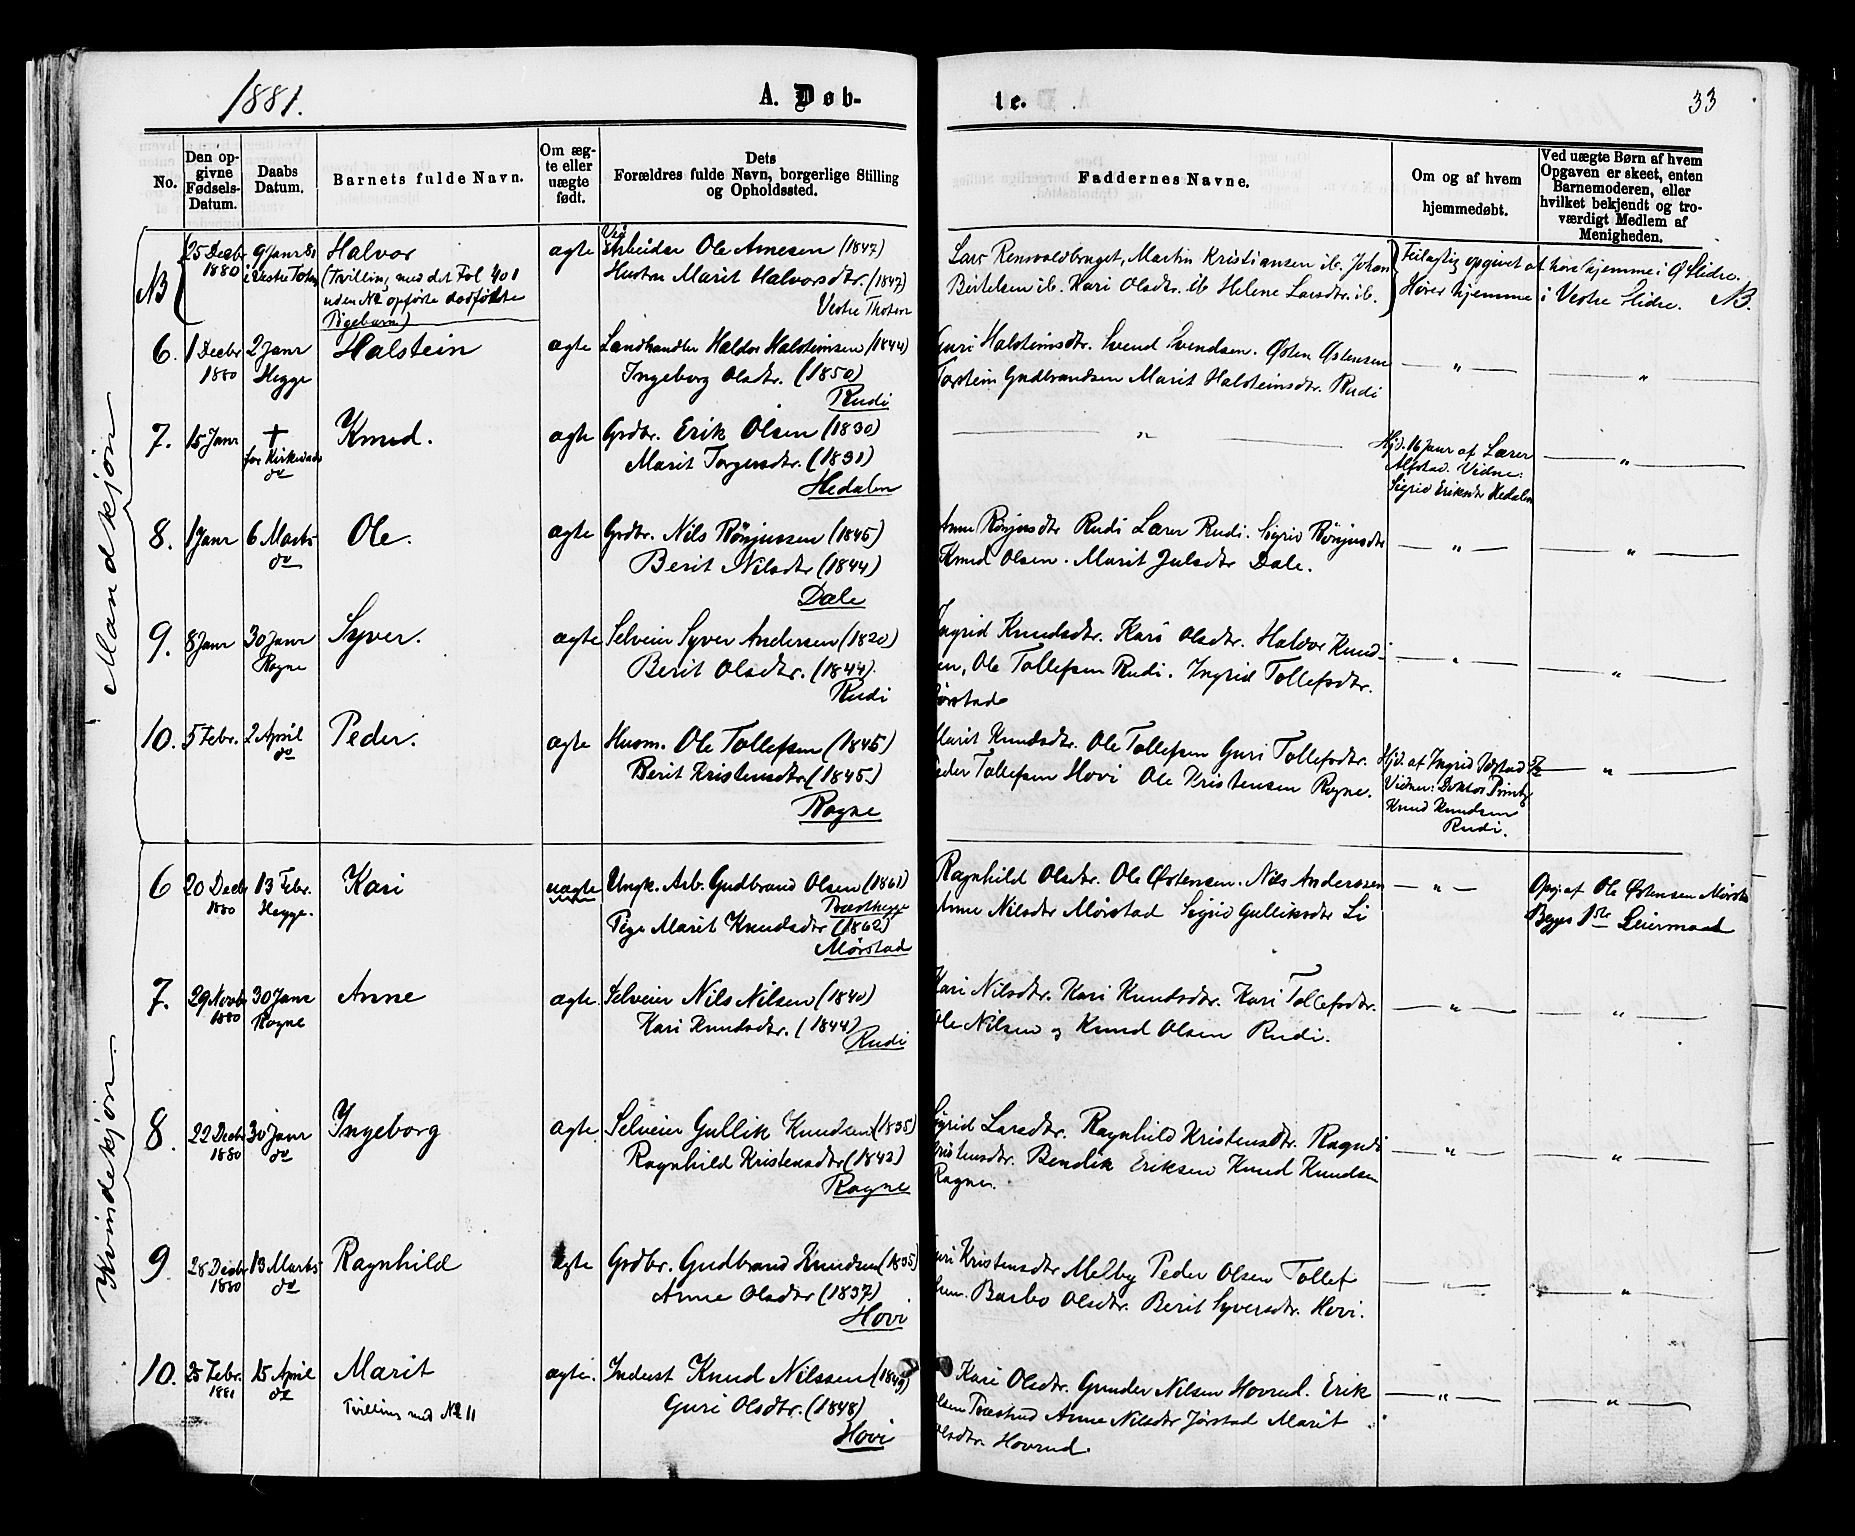 1881.
A. Døb-
te.
33
No.
Den op-
givne
Fødsels-
Datum.
Daabs
Datum.
Barnets fulde Navn.
Om æg-
te eller
uægte
født.
Dets
Forældres fulde Navn, borgerlige Stilling
og Opholdssted.
Faddernes Navne.
Om og af hvem
hjemmedøbt.
Ved uægte Børn af hvem
Opgaven er skeet, enten
Barnemoderen, eller
hvilket bekjendt og tro-
værdigt Medlem af
Menigheden.
Mandkjøn
NB
25 Decbr
1880
9 Janr 81
i Vestre Toten
Halvor
(Tvilling med det Fol 401
uden No opførte dødfødte
Pigebarn)
ægte
Arbeider Ole Arnesen (1847)
Hustru Marit Halvorsdtr. (1847)
Vestre Thoten
Lars Martin Kristiansen ib. Johan
Bertelsen ib. Kari Olsdtr. ib Helene Larsdtr. ib.
Feilagtig opgivet at høre hjemme i Ø Slidre.
Hører hjemme i Vestre Slidre. NB.
6. 1 Decbr
1880
2 Janr
Hegge
Halstein
ægte
Landhandler Haldor Halsteinsen (1844)
Ingeborg Olsdtr. (1850)
Rudi
Guri Halsteinsdtr. Svend Svendsen. Østen Østensen
Torstein Gudbrandsen Marit Halsteinsdtr. Rudi
— " —
— " —
7. 15 Janr
†
før Kirkedaab
do
Knud.
ægte
Grdbr. Erik Olsen (1830)
Marit Torgersdtr. (1831)
Hedalen
— " —
Hjd. 16 Janr af Lærer
Alfstad. Vidne:
Sigrid Eriksdtr Hedalen
— " —
8. 1 Janr
6 Marts
do
Ole.
ægte
Grdbr. Nils Rønjussen (1845)
Berit Nilsdtr (1844)
Dale
Anne Rønjusdtr Rudi Lærer Rudi. Sigrid Rønjusdtr
Knud Olsen. Marit Julsdtr Dale.
— " —
— " —
9. 8 Janr
30 Janr
Rogne
Syver.
ægte
Selveier Syver Andersen (1820)
Berit Olsdtr. (1844)
Rudi
Ingrid Knudsdtr. Kari Olsdtr. Haldor Knud-
en, Ole Tollefsen Rudi. Ingrid Tollefsdtr.
Jørstad
— " —
— " —
10. 5 Febr.
2 April
do
Peder.
ægte
Husm. Ole Tollefsen (1845)
Berit Kristensdtr (1845)
Rogne
Marit Knudsdtr. Ole Tollefsen Guri Tollefsdtr.
Peder Tollefsen Hovi Ole Kristensen Rogne.
Hjd. af Ingrid Jørstad
Vidner: Doktor
Knud Knudsen
Rudi.
— " —
Kvindekjøn
6 20 Decbr
1880
13 Febr.
Hegge.
Kari
uægte
Ungk. Arb. Gudbrand Olsen (1861)
Pige Marit Knudsdtr (1862)
Mørstad
Ragnhild Olsdtr. Ole Østensen. Nils Anderssen
Anne Nilsdtr Mørstad Sigrid Gulliksdtr Li
— " —
Opg. af Ole Østensen Mørstad
Begges 1ste Leiermaal
7. 29 Novbr
1880
30 Janr
Rogne
Anne
ægte.
Selveier Nils Nilsen (1840)
Kari Knudsdtr. (1844)
Rudi
Kari Nilsdtr. Kari Knudsdtr. Kari Tollefsdtr.
Ole Nilsen og Knud Olsen Rudi.
— " —
— " —
8. 22 Decbr
1880
30 Janr
do
Ingeborg
ægte.
Selveier Gullik Knudsen (1835)
Ragnhild Kristensdtr (1842)
Rogne
Sigrid Larsdtr. Ragnhild Kristensdtr. Ragndi
Kristensdtr. Bendik Eriksen Knud Knudsen
Rogne.
— " —
— " —
9 28 Decbr
1880
13 Marts
do
Ragnhild
ægte
Grdbr. Gudbrand Knudsen (1835)
Anne Olsdtr (1837)
Hovi
Guri Kristensdtr Melby Peder Olsen Tollef
Barbo Olsdtr. Berit Syversdtr. Hovi.
— " —
— " —
10. 25 Febr.
1881
15 April
do
Marit
Tvilling med No 11
ægte.
Inderst Knud Nilssen (1849)
Guri Olsdtr. (1848)
Hovi
Kari Olsdtr. Gunder Nilsen Hovrud. Erik
Olsen Anne Nilsdtr Jørstad Marit
Olsdtr. Hovrud.
— " —
— " —